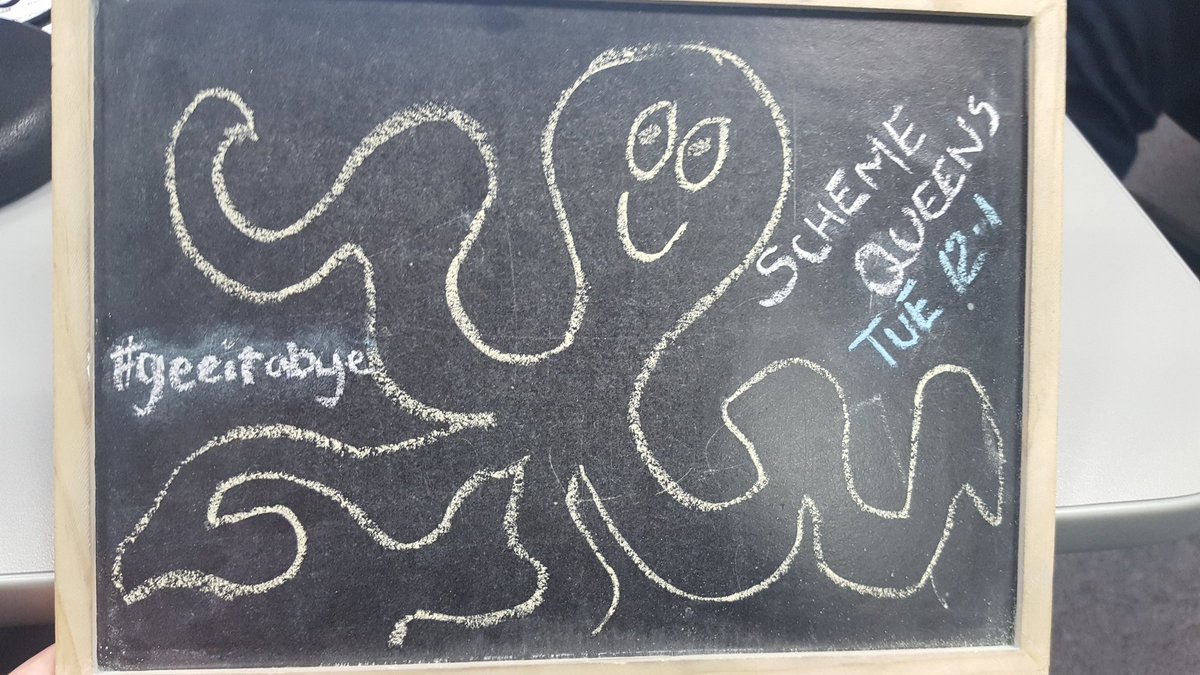 SCHEME
QUEENS
TUE 12-1
#geeitabye